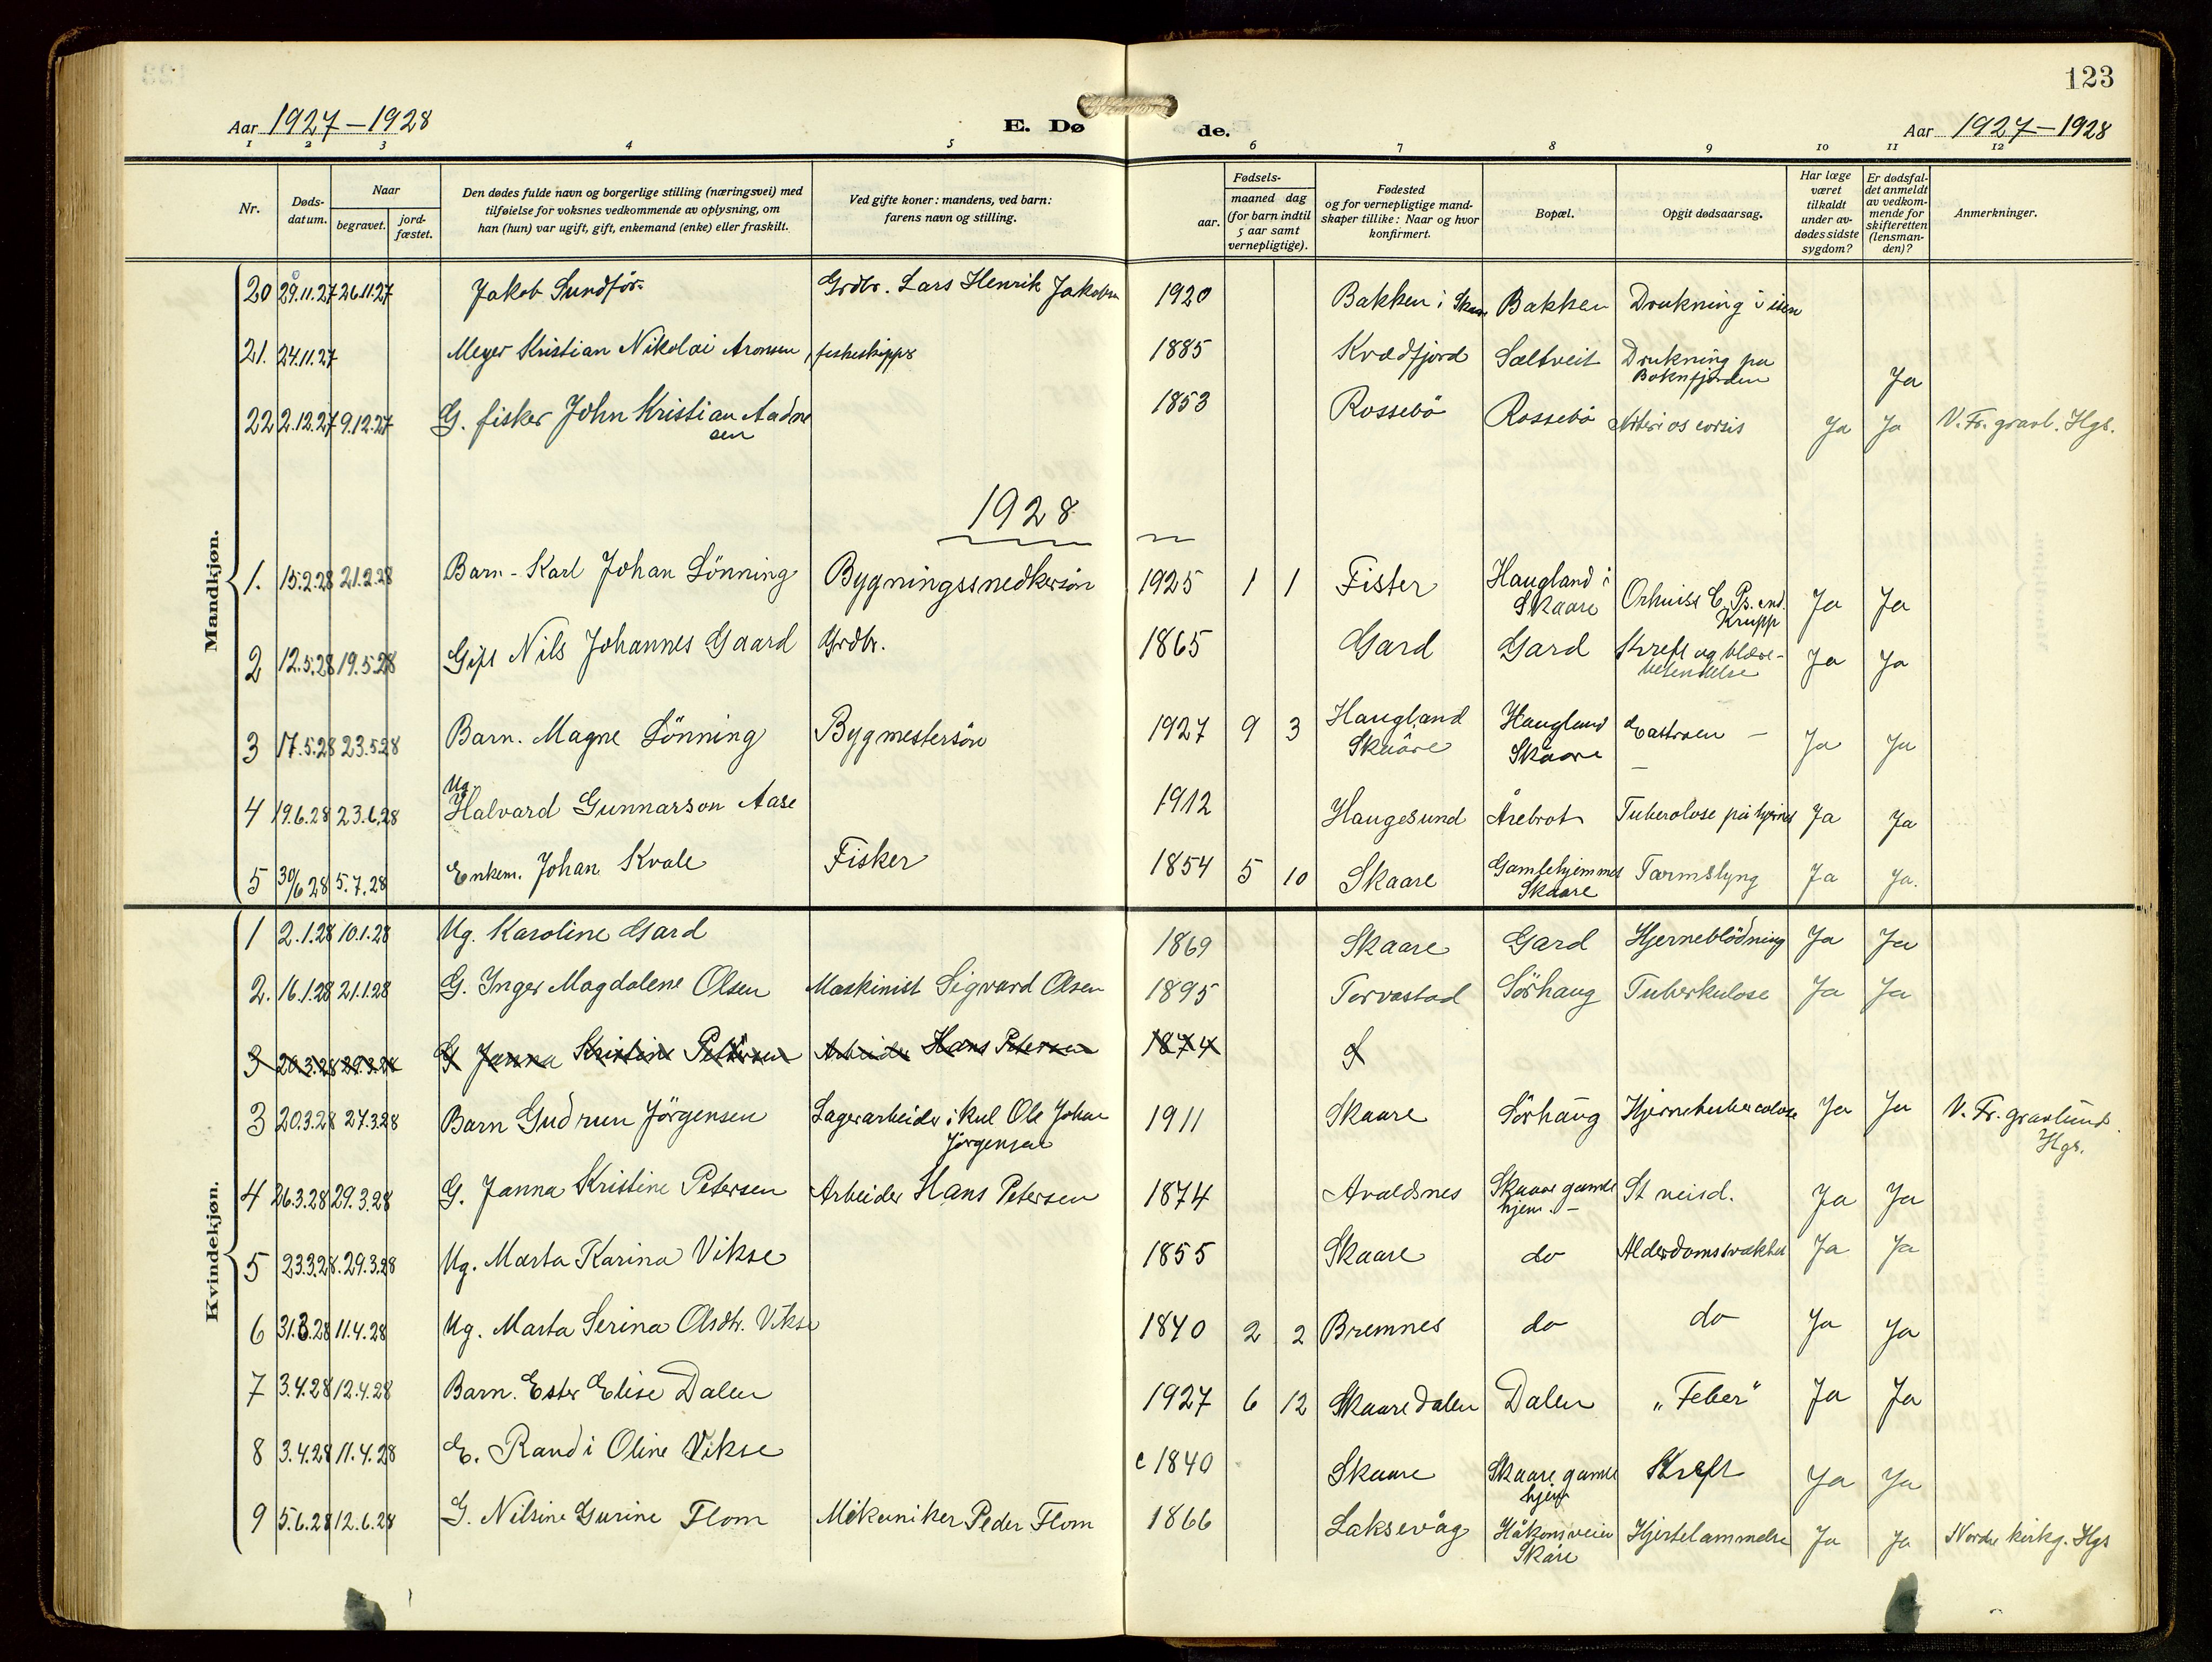 123
Aar 1927-1928
E. Dø de.
Aar 1927-1928
1 2 3 4 5 6 7 8 9 10 11 12
Nr.
Døds-
datum.
Naar
begravet.
jord-
fæstet.
Den dødes fulde navn og borgerlige stilling (næringsvei) med
tilføielse for voksnes vedkommende av oplysning, om
han (hun) var ugift, gift, enkemand (enke) eller fraskilt.
Ved gifte koner: mandens, ved barn:
farens navn og stilling.
Fødsels-
aar.
maaned dag
(for barn indtil
5 aar samt
vernepligtige).
Fødested
og for vernepligtige mand-
skaper tillike: Naar og hvor
konfirmert.
Bopæl.
Opgit dødsaarsag.
Har læge
været
tilkaldt
under av-
dødes sidste
sygdom?
Er dødsfal-
det anmeldt
av vedkom-
mende for
skifteretten
(lensman-
den)?
Anmerkninger.
Mandkjøn.
20 29.11.27 26.11.27 Jakob Sundför Grdbr. Lars Henrik Jakobsen 1920 Bakken i Skaare Bakken Drukning i isen
21. 24.11.27 Meyer Kristian Nikolai Aronsen, fiskeskipper 1885 Kvædfjord Saltveit Drukning på
Boknfjorden Ja
22 2.12.27 9.12.27 G. fisker John Kristian Aadne
sen 1853 Rossebö Rossebö Ja Ja V. Fr. gravl. Hgs.
1928
1. 15.2.28 21.2.28 Barn - Karl Johan Lönning Bygningssnedkersön 1925 1 1 Fister Haugland i
Skaare Krupp Ja Ja
2 12.5.28 19.5.28 Gift Nils Johannes Gaard Grdbr. 1865 Gard Gard Kreft og blære-
betendelse Ja Ja
3 17.5.28 23.5.28 Barn. Magne Lönning Bygmestersön 1927 9 3 Haugland
Skaare Haugland
Skaare - Ja Ja
4 19.6.28 23.6.28 Ug.
Halvard Gunnarson Aase 1912 Haugesund Årebrot Tuberolose på hjernen Ja Ja
5 30/6 28 5.7.28 Enkem. Johan Kvale Fisker 1854 5 10 Skaare Gamlehjemmet
Skaare Tarmslyng Ja Ja.
Kvindekjøn.
1 2.1.28 10.1.28 Ug. Karoline Gard 1869 Skaare Gard Hjerneblödning Ja Ja
2. 16.1.28 21.1.28 G. Inger Magdalene Olsen Maskinist Sigvard Olsen 1895 Torvastad Sörhaug Tuberkulose Ja Ja
3 20.3.28 29.3.28 G Janna Kristine Petersen Arbeider Hans Petersen 1874
3 20.3.28 27.3.28 Barn Gudrun Jörgensen Lagerarbeider i kul Ole Johan
Jörgensen 1911 Skaare Sörhaug Hjernetuberculose Ja Ja V. Fr. gravlund.
Hgs.
4 26.3.28 29.3.28 G. Janna Kristine Petersen Arbeider Hans Petersen 1874 Avaldsnes Skaare gamle
hjem. - Ja Ja
5 23.3.28. 29.3.28 Ug. Marta Karina Vikse 1855 Skaare do Alderdomssvakhet Ja Ja
6 31.3.28 11.4.28 Ug. Marta Serina Olsdtr. Vikse 1840 2 2 Bremnes do do Ja Ja
7 3.4.28 12.4.28 Barn. Ester Elise Dalen 1927 6 12 Skaaredalen Dalen „Feber" Ja Ja
8 3.4.28 11.4.28 E. Randi Oline Vikse c 1840 Skaare Skaare gamle
hjem Kreft Ja Ja
9 5.6.28 12.6.28 G. Nilsine Gurine Flom Mekaniker Peder Flom 1866 Laksevåg Håkonsveien
Skåre Hjertelammelse Ja Ja Nordre kirkg. Hgs